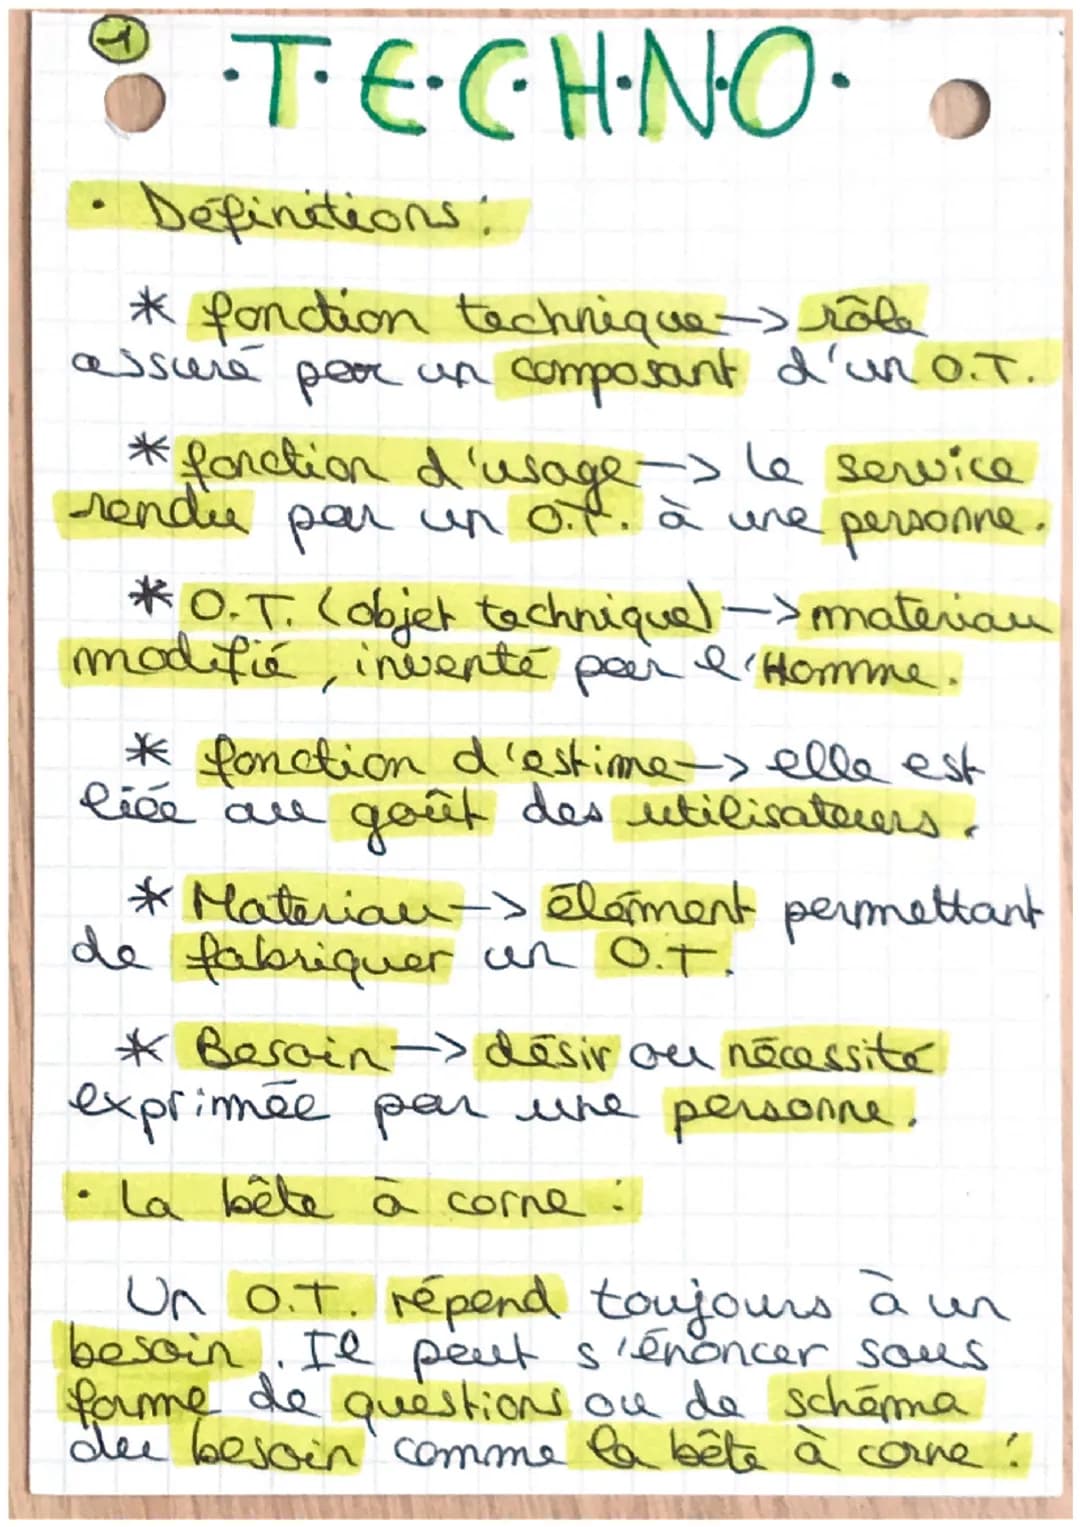 1
·T·E·C·H·N·O·
• Définitions :
* fonction technique -> rôle
assuré par un composant d'un O.T.
* fonction d'usage -> le service
rendu par un O.T. à une personne.
* O.T. (objet technique) -> materiau
modifié, inventé par l'Homme.
* fonction d'estime -> elle est
liée au goût des utilisateurs.
* Materiau -> élément permettant
de fabriquer un O.T.
* Besoin -> désir ou nécessité
exprimée par une personne.
• La bête à corne :
Un O.T. répend toujours à un
besoin. Il peut s'énoncer sous
forme de questions ou de schéma
du besoin comme la bête à corne :